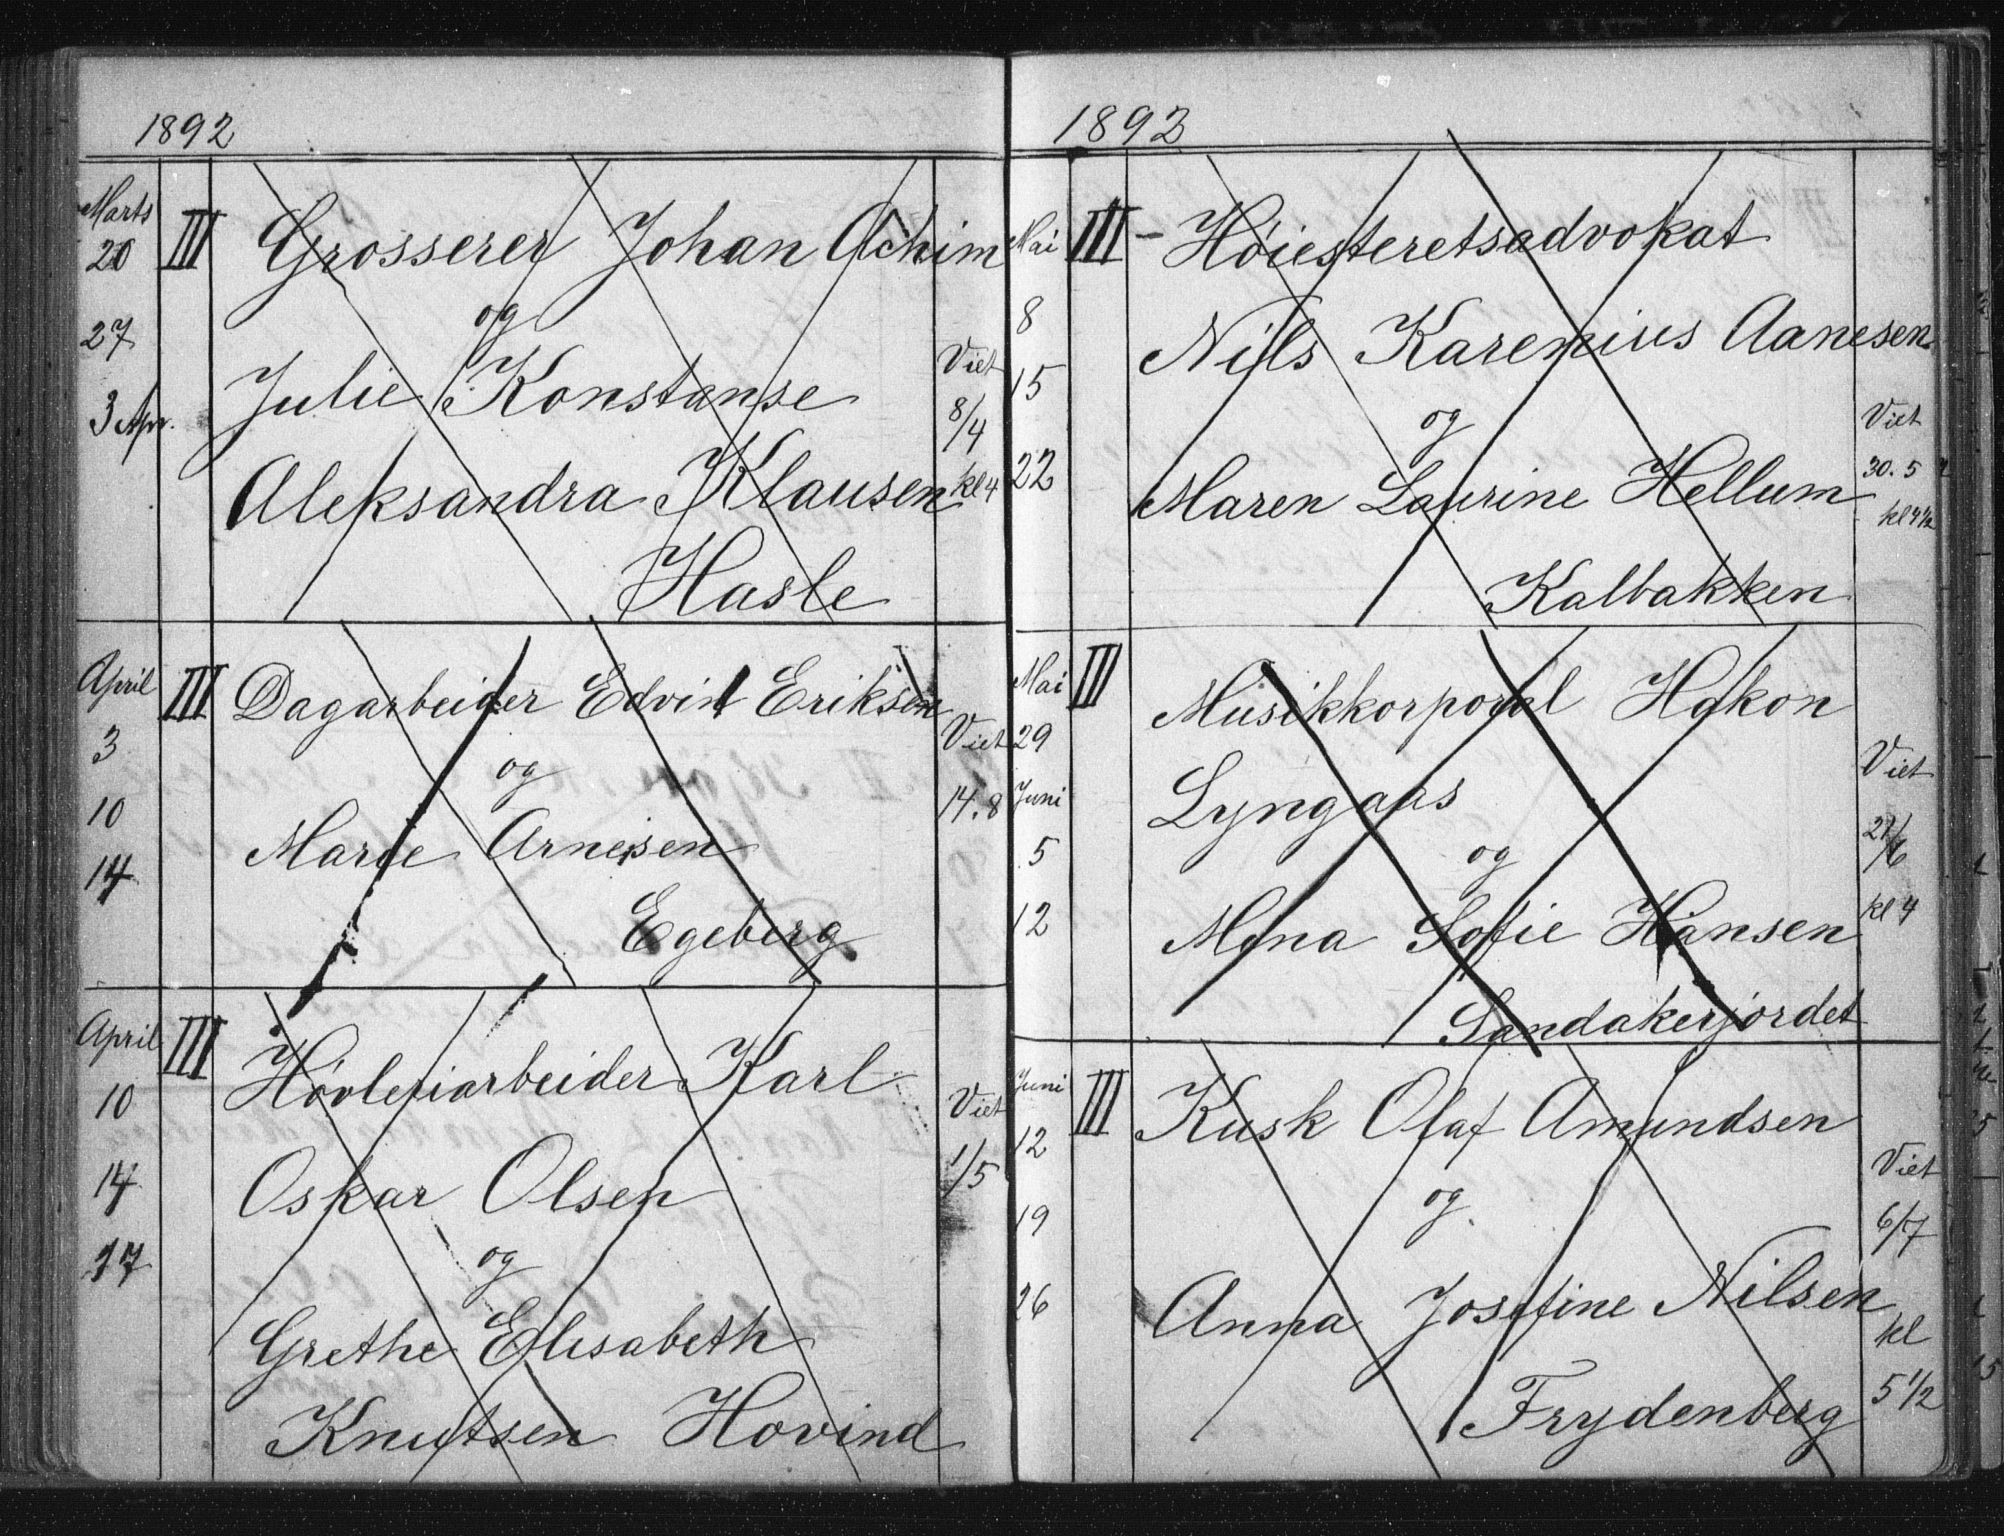 1892
Marts
20
27
3 Apr.
III
Grosserer Johan Achim
og
Julie Konstanse
Aleksandra Klausen
Hasle
Viet
8/4
kl 4
April
3
10
14
III
Dagarbeider Edvin Eriksen
og
Marie Arnesen
Egeberg
Viet
14.8
April
10
14
17
III
Høvleriarbeider Karl
Oskar Olsen
og
Grethe Elisabeth
Knutsen Hovind
Viet
1/5
1892
Mai
8
15
22
III - Høiesteretsadvokat
Nils Karenius Aanesen
og
Maren Laurine Hellum
Kalbakken
Viet
30. 5
kl 4½
Mai
29
Juni
5
12
III
Musikkorporal Hakon
Lyngaas
og
Mina Sofie Hansen
Sandakerjordet
Viet
27/6
kl 4
Juni
12
19
26
III
Kusk Olaf Amundsen
og
Anna Josefine Nilsen
Frydenberg
Viet
6/7
kl
5 1/2